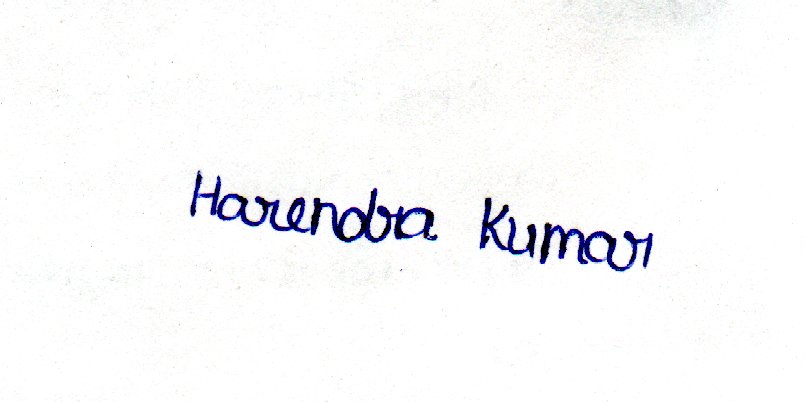 Harendra Kumar